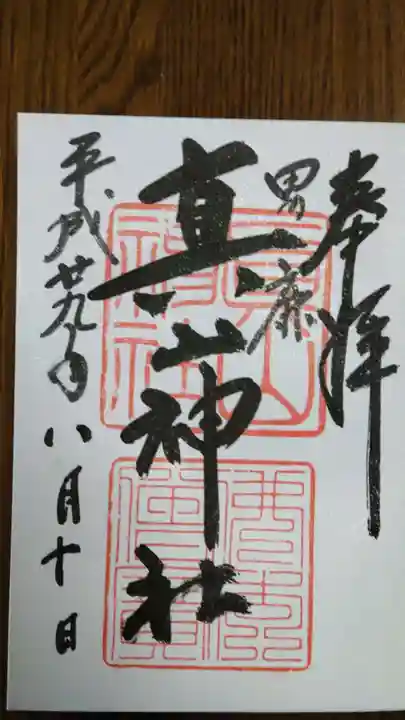 奉拝
男鹿
真山神社
平成廿九年八月十日
真山神社